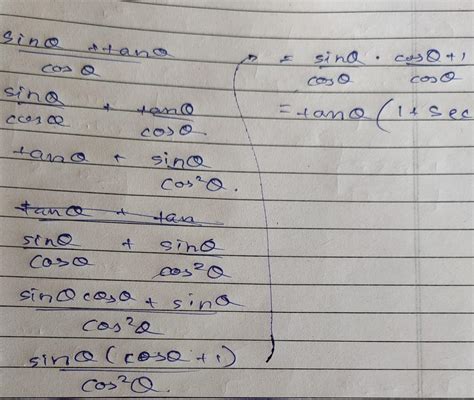 sinθ + tanθ
cosθ
sinθ + tanθ
cosθ cosθ
tanθ + sinθ
cos²θ.
tanθ + tan
sinθ + sinθ
cosθ cos²θ
sinθ cosθ + sinθ
cos²θ
sinθ (cosθ + 1)
cos²θ.
= sinθ . cosθ + 1
cosθ cosθ
= tanθ (1 + sec